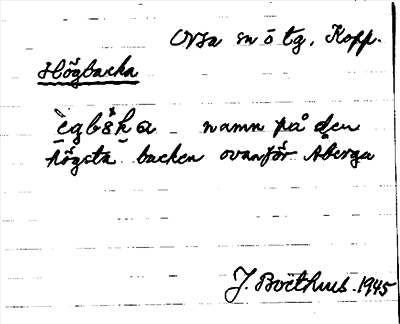 Orsa sn ö tg, Kopp.
Högbacka
namn på den
högsta backen ovanför Åberga
J. Boëthius. 1945